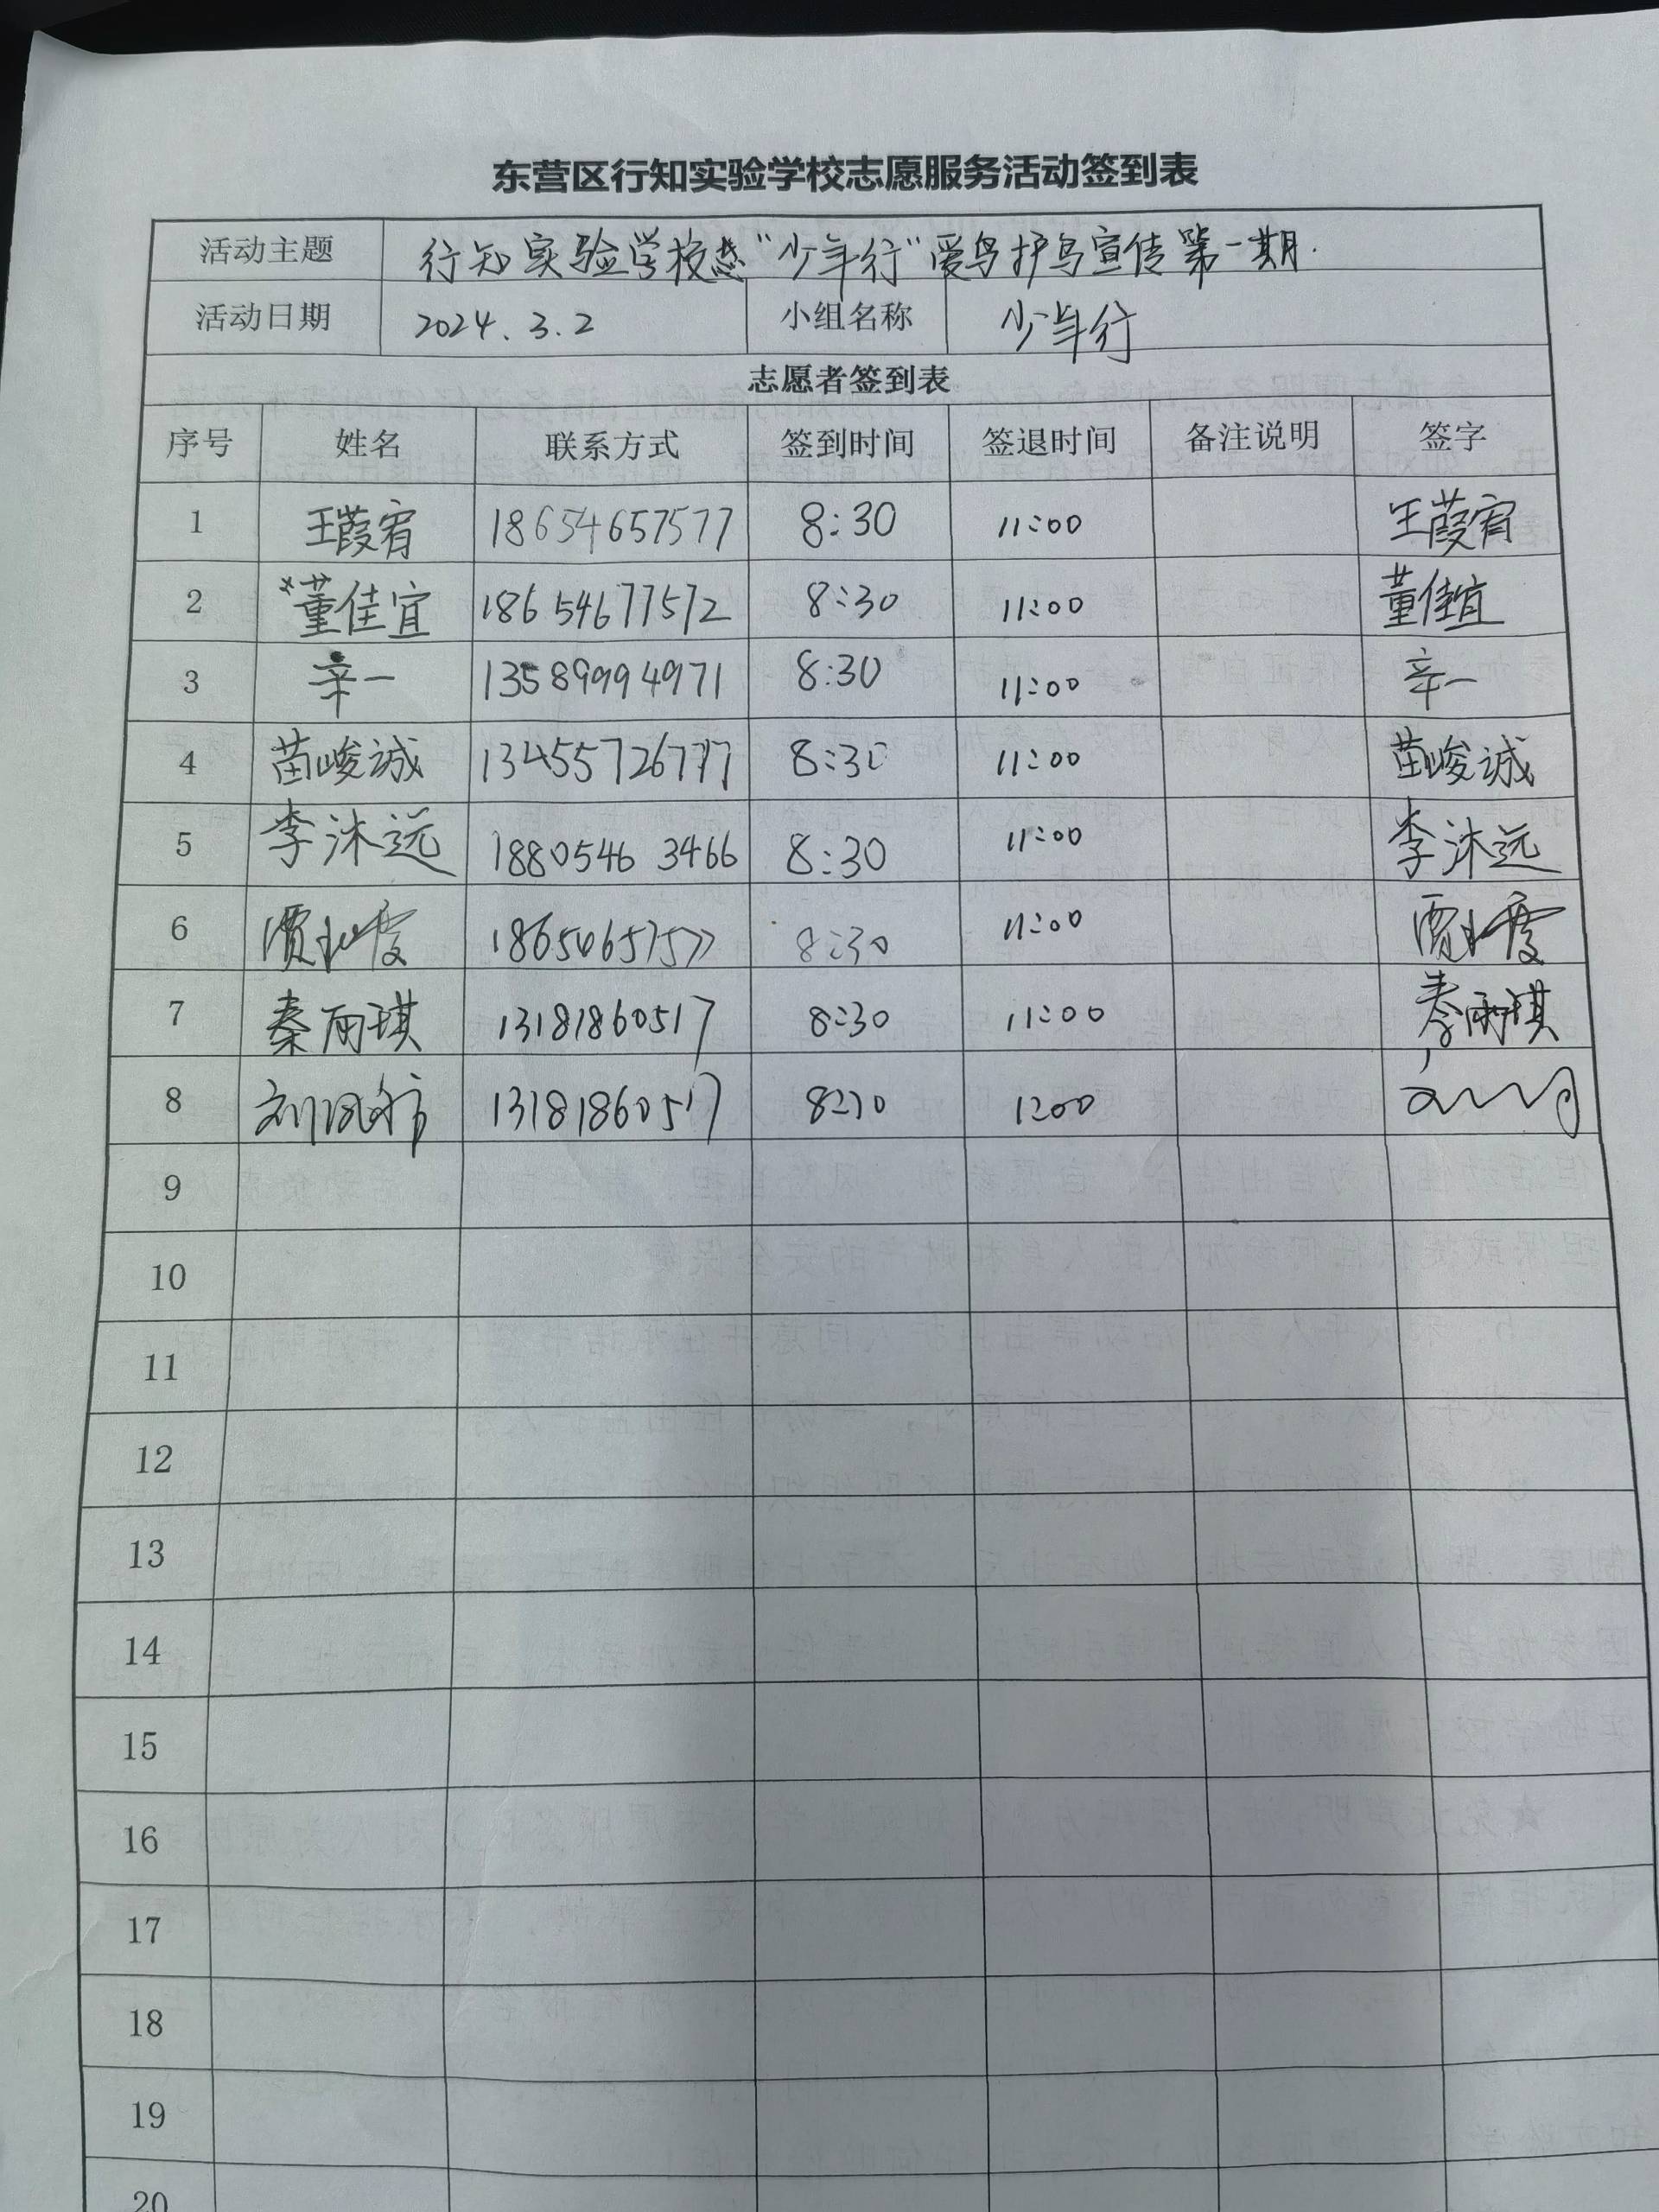 东营区行知实验学校志愿服务活动签到表
活动主题 行知实验学校 "少年行"爱鸟护鸟宣传第一期.
活动日期 2024.3.2 小组名称 少年行
志愿者签到表
序号 姓名 联系方式 签到时间 签退时间 备注说明 签字
1 王葭宥 18654657577 8:30 11:00 王葭宥
2 董佳宜 18654677572 8:30 11:00 董佳宜
3 辛一 13589994971 8:30 11:00 辛一
4 苗峻诚 13455726777 8:30 11:00 苗峻诚
5 李沐远 18805463466 8:30 11:00 李沐远
6 贾 18654657577 8:30 11:00 贾
7 秦雨琪 13181860517 8:30 11:00 秦雨琪
8 13181860517
9
10
11
12
13
14
15
16
17
18
19
20